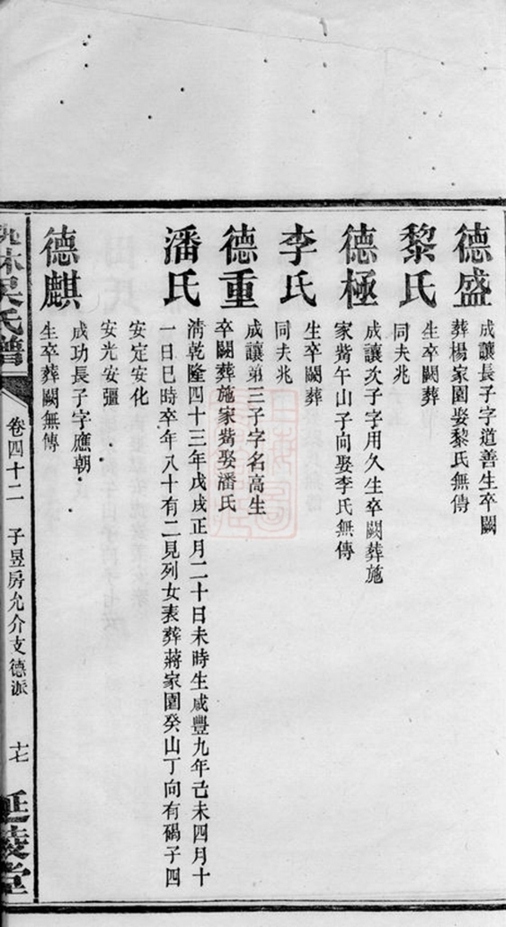 德盛
成讓長子字道善生卒闕
葬楊家園娶黎氏無傳
黎氏
生卒闕葬
同夫兆
德極
成讓次子字用久生卒闕葬施
家觜午山子向娶李氏無傳
李氏
生卒闕葬
同夫兆
德重
成讓第三子字名高生
卒闕葬施家觜娶潘氏
潘氏
清乾隆四十三年戊戌正月二十日未時生咸豐九年己未四月十
一日巳時卒年八十有二見列女表葬蔣家園癸山丁向有碣子四
安定安化
安光安彊
德麒
成功長子字應朝
生卒葬闕無傳
林吳氏譜
卷四十二
子昱房允介支德派
十七
延陵堂